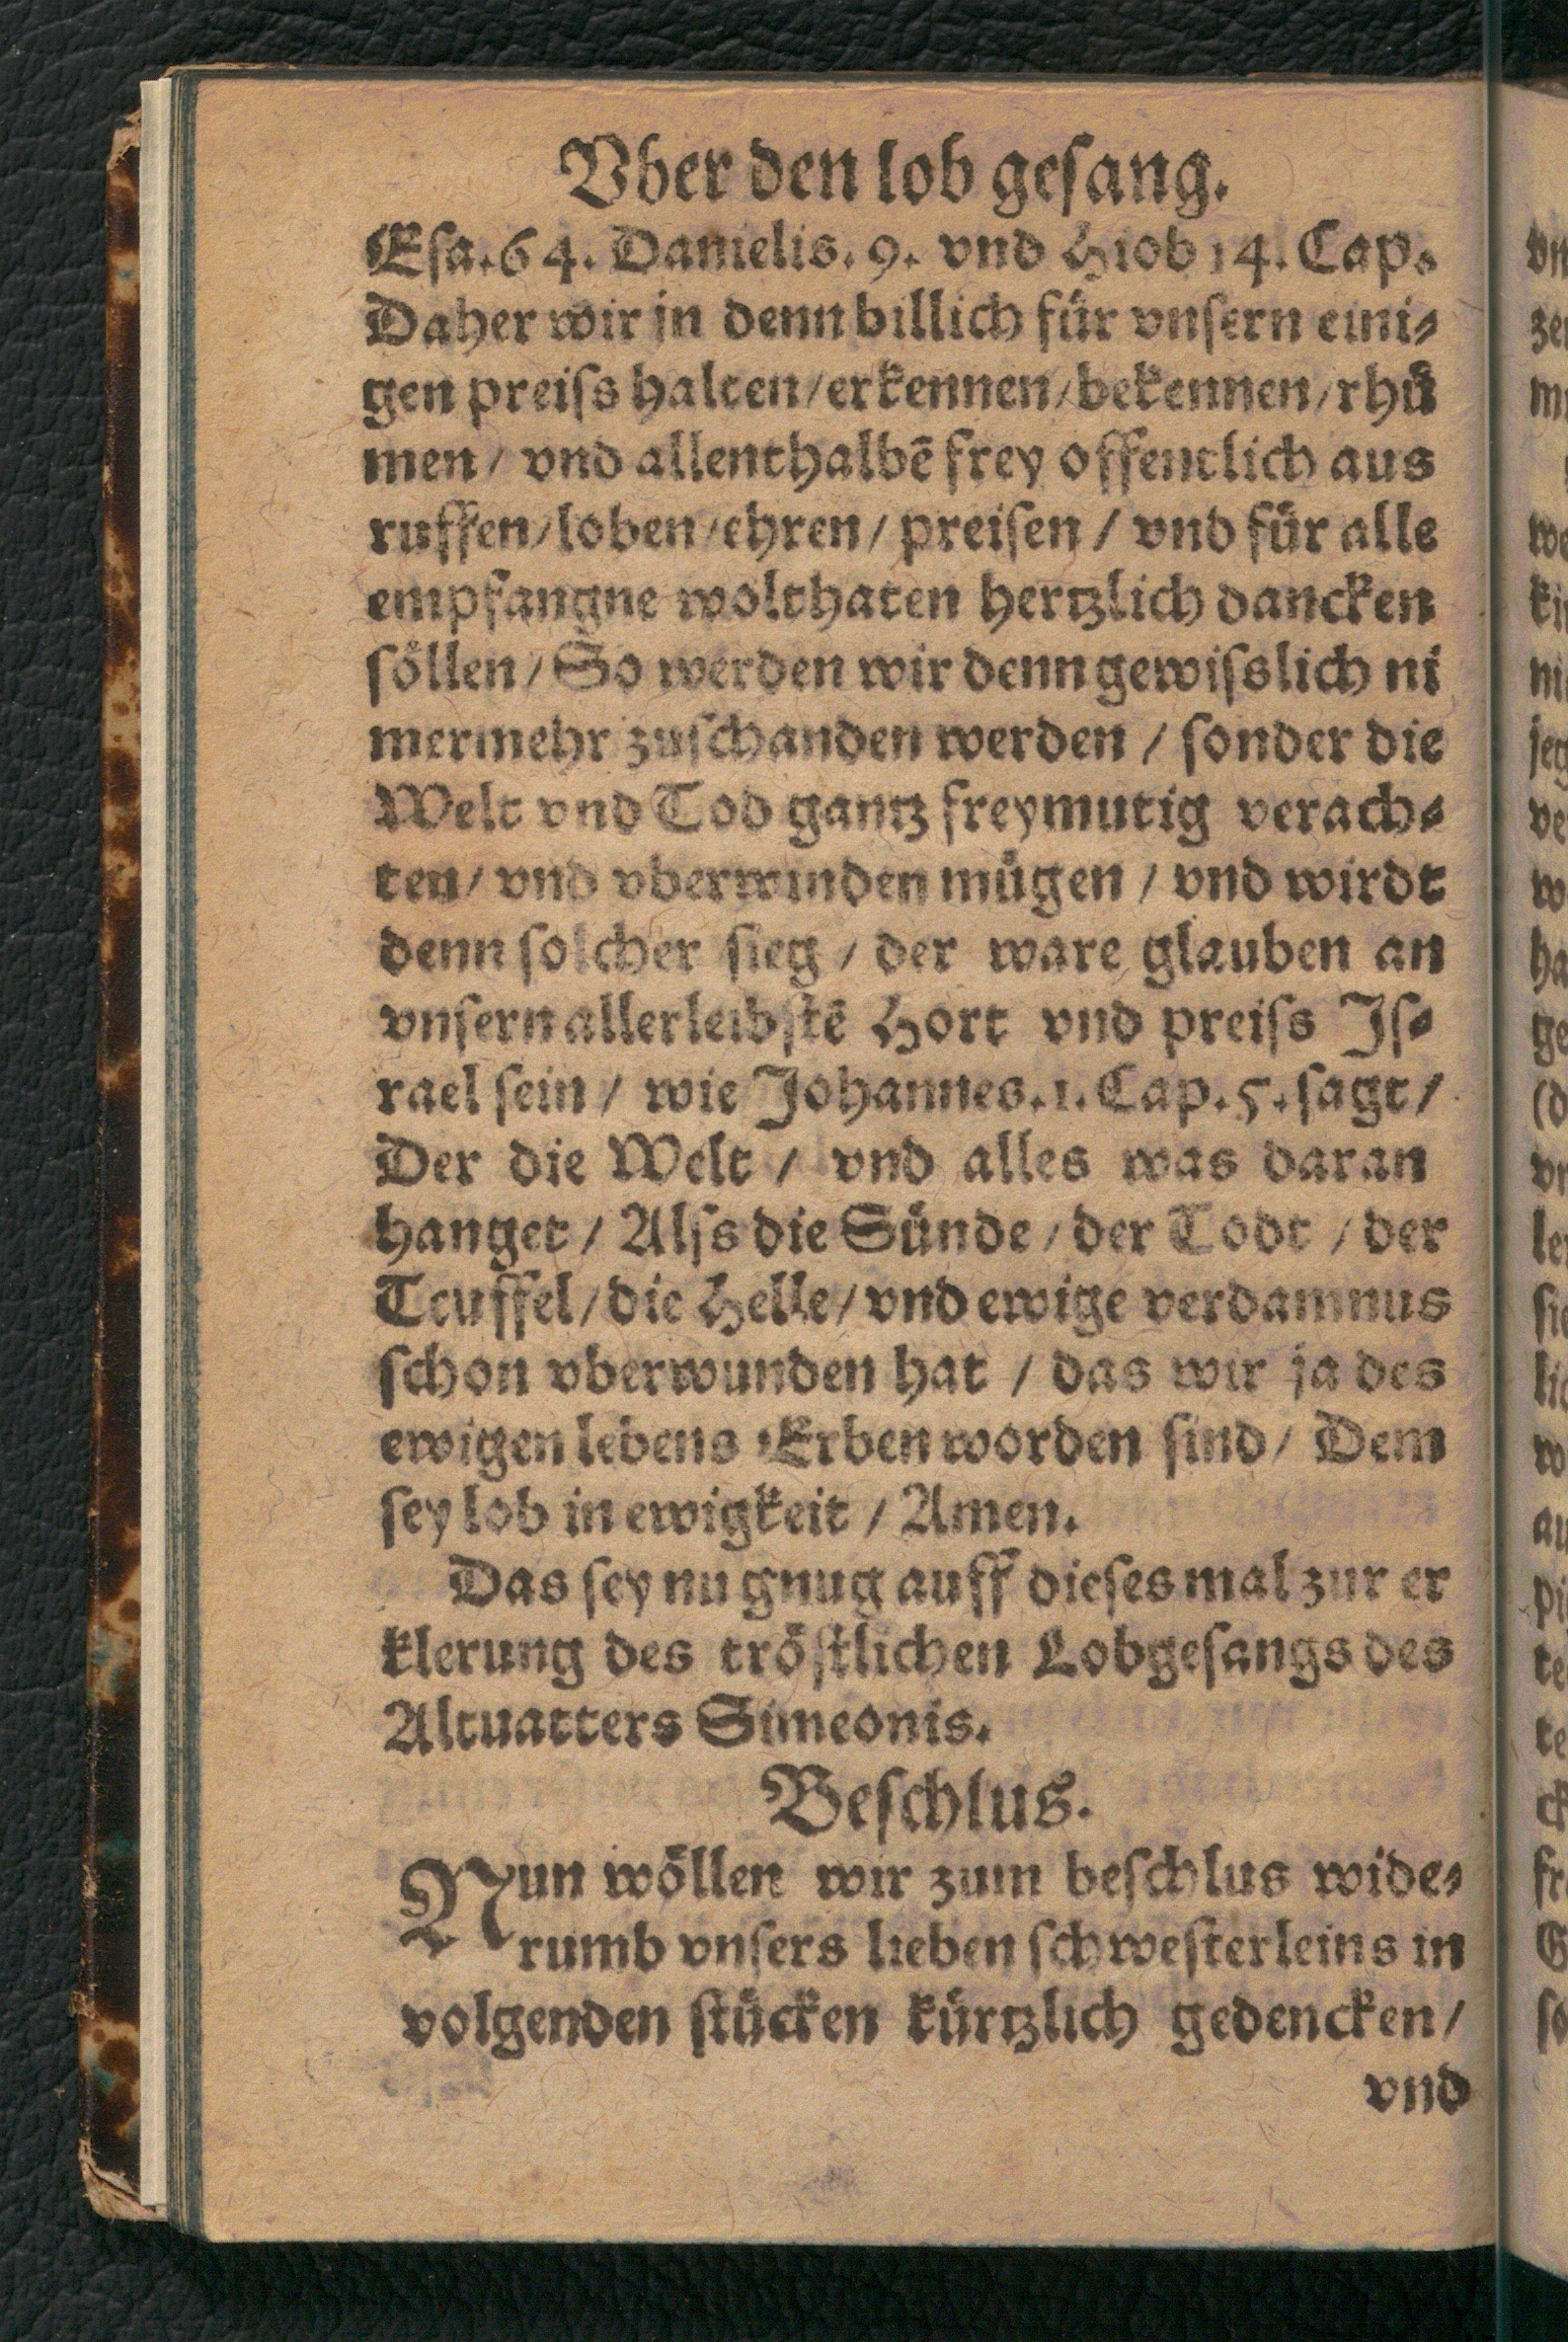 Vber den lob gesang.
Esa.64. Danielis. 9. vnd Hiob 14. Cap.
Daher wir jn denn billich für vnsern eini⸗
gen preiſs halten/erkennen/bekennen/rhü
men/ vnd allenthalbē frey offentlich aus
ruffen/loben/ehren/ preiſen / vnd für alle
empfangne wolthaten hertzlich dancken
söllen/ So werden wir denn gewiſslich ni
mermehr zuſchanden werden / ſonder die
Welt vnd Tod gantz freymutig verach⸗
ten/ vnd vberwinden mügen / vnd wirdt
denn ſolcher ſieg / der ware glauben an
vnſern allerleibſtē Hort vnd preiſs Iſ⸗
rael ſein / wie Johannes.1. Cap.5. ſagt /
Der die Welt / vnd alles was daran
hanget / Alſs die Sünde / der Todt / der
Teuffel/ die Helle/ vnd ewige verdamnus
ſchon vberwunden hat / das wir ja des
ewigen lebens Erben worden ſind/ Dem
ſey lob in ewigkeit / Amen.
Das ſey nu gnug auff dieſes mal zur er
klerung des tröſtlichen Lobgeſangs des
Altuatters Simeonis.
Beſchlus.
Nun wöllen wir zum beſchlus wide⸗
rumb vnſers lieben ſchweſterleins in
volgenden ſtücken kürtzlich gedencken/
vnd